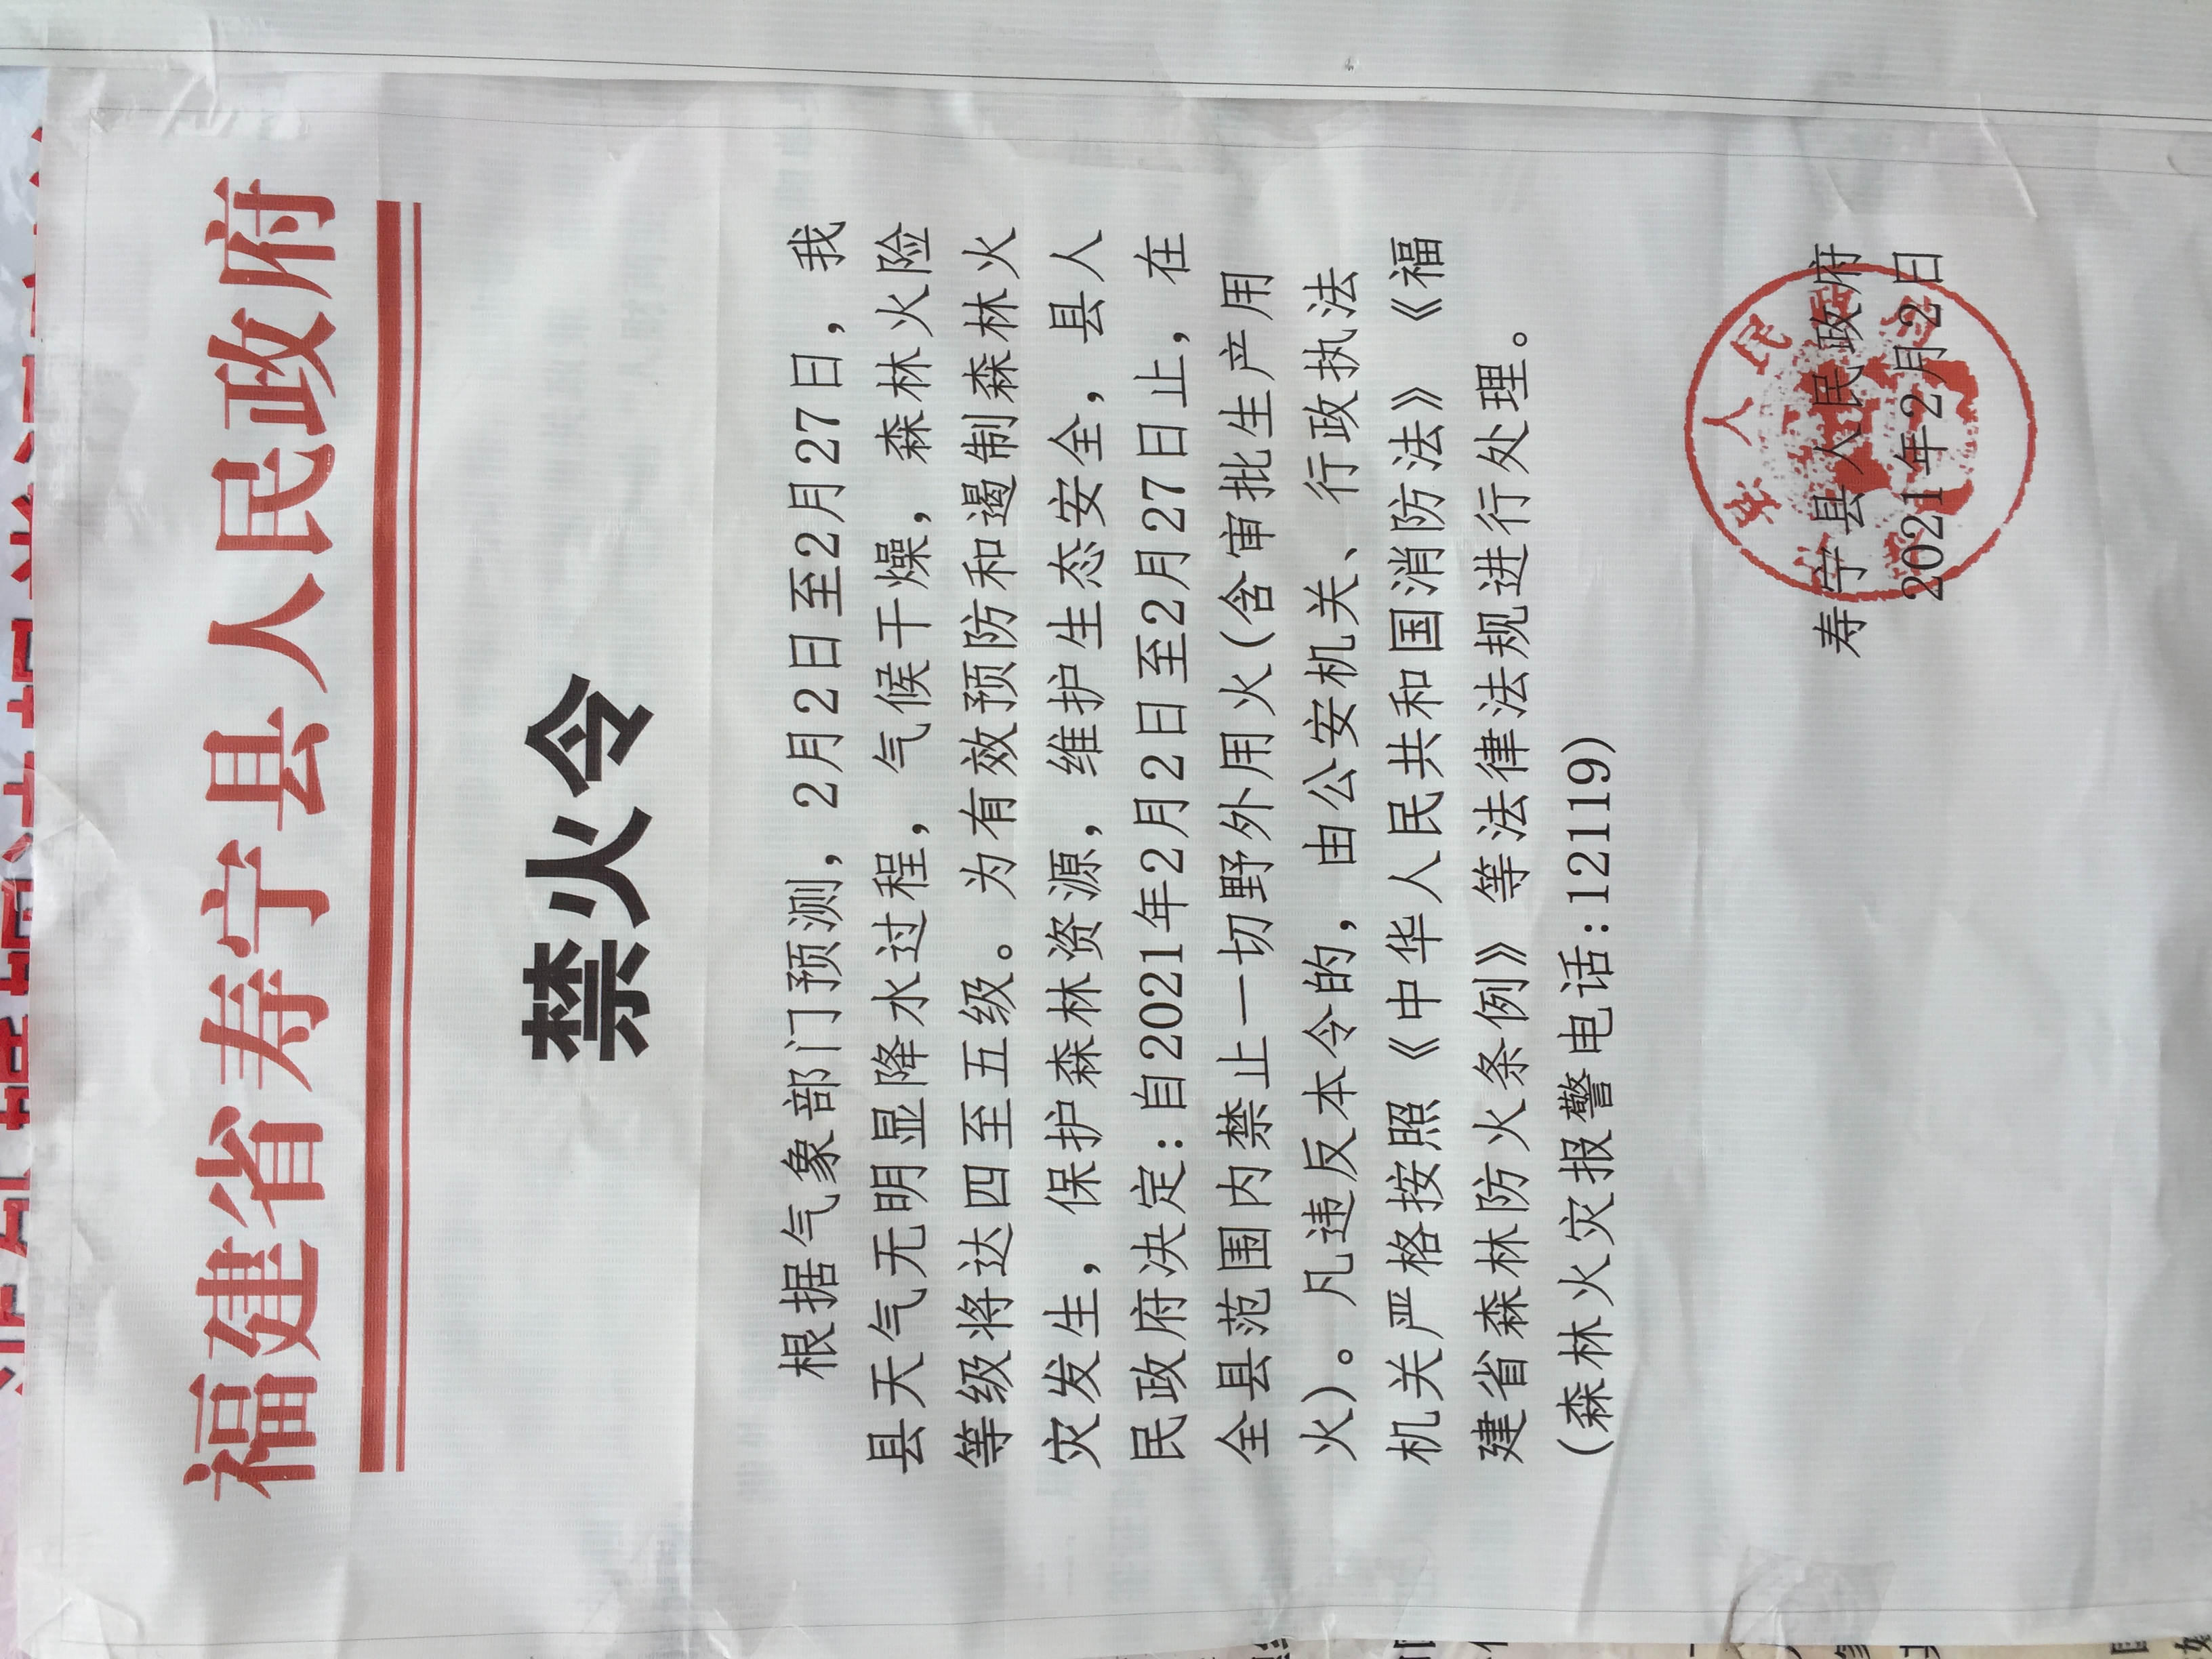 福建省寿宁县人民政府
禁火令
根据气象部门预测，2月2日至2月27日，我
县天气无明显降水过程，气候干燥，森林火险
等级将达四至五级。为有效预防和遏制森林火
灾发生，保护森林资源，维护生态安全，县人
民政府决定：自2021年2月2日至2月27日止，在
全县范围内禁止一切野外用火（含审批生产用
火）。凡违反本令的，由公安机关、行政执法
机关严格按照《中华人民共和国消防法》《福
建省森林防火条例》等法律法规进行处理。
（森林火灾报警电话：12119）
寿宁县人民政府
2021年2月2日